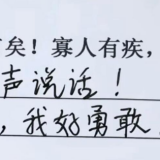 矣！寡人有疾，
声说话！
，我好勇敢